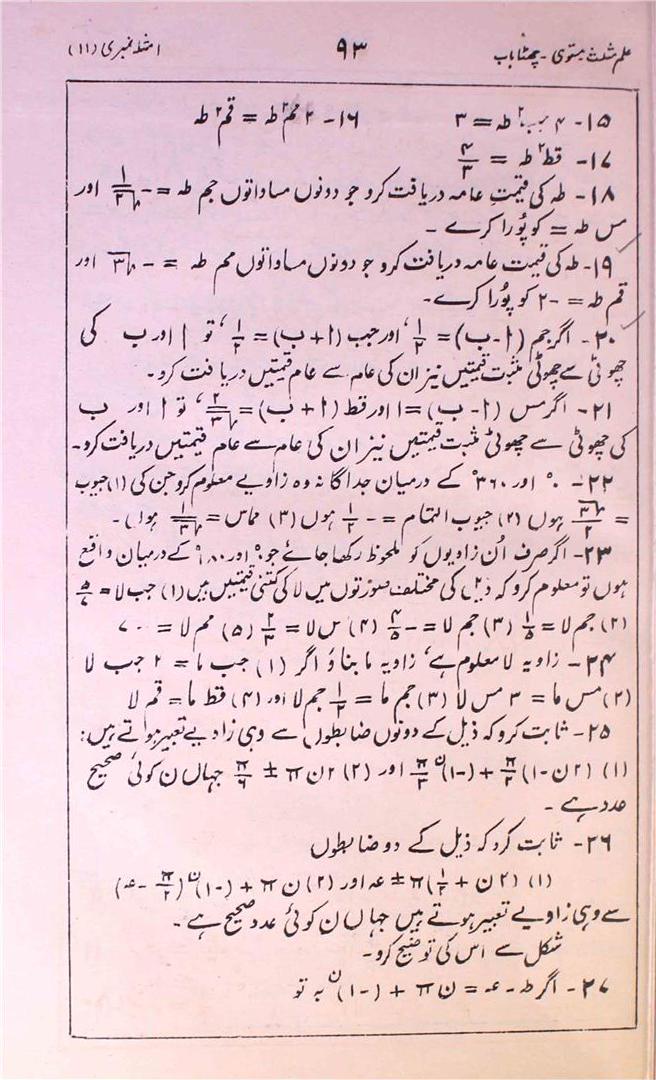 علم مثلث مستوی - چھٹا باب ۹۳ امثلہ نمبری (۱۱)
۱۵- ۴ جب۲ طہ = ۳ ۱۶- ۲ مم۲ طہ = قم۲ طہ
۱۷- قط۲ طہ = ۴/۳
۱۸- طہ کی قیمت عامہ دریافت کرو جو دونوں مساواتوں جم طہ = - ۱/√۲ اور
مس طہ = کو پُورا کرے -
۱۹- طہ کی قیمت عامہ دریافت کرو جو دونوں مساواتوں مم طہ = - √۳ اور
قم طہ = -۲ کو پُورا کرے-
۲۰- اگر جم (ا-ب) = ۱/۲، اور جب (ا+ب) = ۱/۲، تو ا اور ب کی
چھوٹی سے چھوٹی مثبت قیمتیں نیز ان کی عامہ سے عام قیمتیں دریافت کرو-
۲۱- اگر مس (ا-ب) = ۱ اور قط (ا+ب) = ۲/√۳، تو ا اور ب
کی چھوٹی سے چھوٹی مثبت قیمتیں نیز ان کی عامہ سے عام قیمتیں دریافت کرو-
۲۲- ۰° اور ۳۶۰° کے درمیان جداگانہ وہ زاویے معلوم کرو جن کی (۱) جیوب
= √۳/۲ ہوں (۲) جیوب التمام = - ۱/۲ ہوں (۳) مماس = ۱/√۳ ہوں-
۲۳- اگر صرف اُن زاویوں کو ملحوظ رکھا جائے جو ۰° اور ۱۸۰° کے درمیان واقع
ہوں تو معلوم کرو کہ ذیل کی مختلف صورتوں میں لا کی کتنی قیمتیں ہیں (۱) جب لا = ۵/۷
(۲) جم لا = ۱/۵ (۳) جم لا = - ۴/۵ (۴) مس لا = ۲/۳ (۵) مم لا = - ۷
۲۴- زاویہ لا معلوم ہے، زاویہ ما بناؤ اگر (۱) جب ما = ۲ جب لا
(۲) مس ما = ۳ مس لا (۳) جم ما = ۱/۲ جم لا اور (۴) قط ما = قم لا
۲۵- ثابت کرو کہ ذیل کے دونوں ضابطوں سے وہی زاویے تعبیر ہوتے ہیں:
(۱) (۲ن-۱) π/۲ + (-۱)ن π/۳ اور (۲) ۲ن π ± π/۶ جہاں ن کوئی صحیح
عدد ہے -
۲۶- ثابت کرو کہ ذیل کے دو ضابطوں
(۱) (۲ن + ۱/۲) π ± عہ اور (۲) ن π + (-۱)ن (π/۲ - عہ)
سے وہی زاویے تعبیر ہوتے ہیں جہاں ن کوئی عدد صحیح ہے -
شکل سے اس کی توضیح کرو-
۲۷- اگر طہ - عہ = ن π + (-۱)ن بہ تو